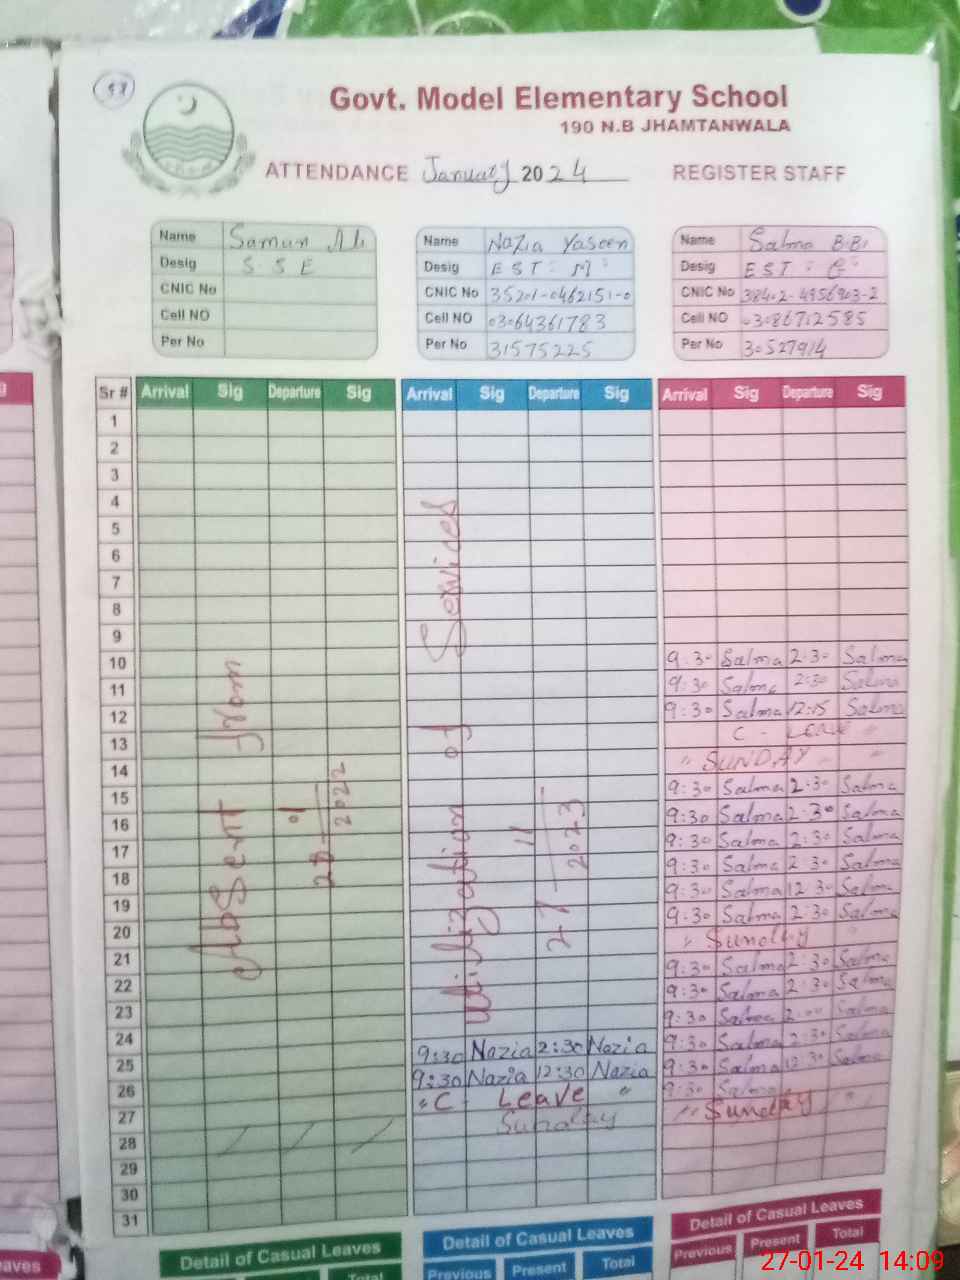 57
Govt. Model Elementary School
190 N.B JHAMTANWALA
ATTENDANCE January 2024 REGISTER STAFF
Name Samun Ali
Desig S.S E
CNIC No
Cell NO
Per No
Name Nazia Yaseen
Desig EST: M:
CNIC No 35201-0462151-0
Cell NO 03064361783
Per No 31575225
Name Salma BiBi
Desig EST: G:
CNIC No 38402-4956903-2
Cell NO 03086712585
Per No 30527914
Sr # Arrival Sig Departure Sig Arrival Sig Departure Sig Arrival Sig Departure Sig
1
2
3
4
5
6
7
8
9
10 9:30 Salma 2:30 Salma
11 9:30 Salma 2:30 Salma
12 9:30 Salma 12:15 Salma
13 C - Leave "
14 " SUNDAY "
15 9:30 Salma 2:30 Salma
16 9:30 Salma 2:30 Salma
17 9:30 Salma 2:30 Salma
18 9:30 Salma 2:30 Salma
19 9:30 Salma 12:30 Salma
20 9:30 Salma 2:30 Salma
21 " Sunday "
22 9:30 Salma 2:30 Salma
23 9:30 Salma 2:30 Salma
24 9:30 Salma 2:00 Salma
25 9:30 Nazia 2:30 Nazia 9:30 Salma 2:30 Salma
26 9:30 Nazia 12:30 Nazia 9:30 Salma 12:30 Salma
27 "C - Leave " 9:30 Salma
28 Sunday " Sunday "
29
30
31
Absent from
28-01-2022
Utilization of Services
27-11-2023
Detail of Casual Leaves
Total
Detail of Casual Leaves
Previous Present Total
Detail of Casual Leaves
Previous Present Total
aves
27-01-24 14:09